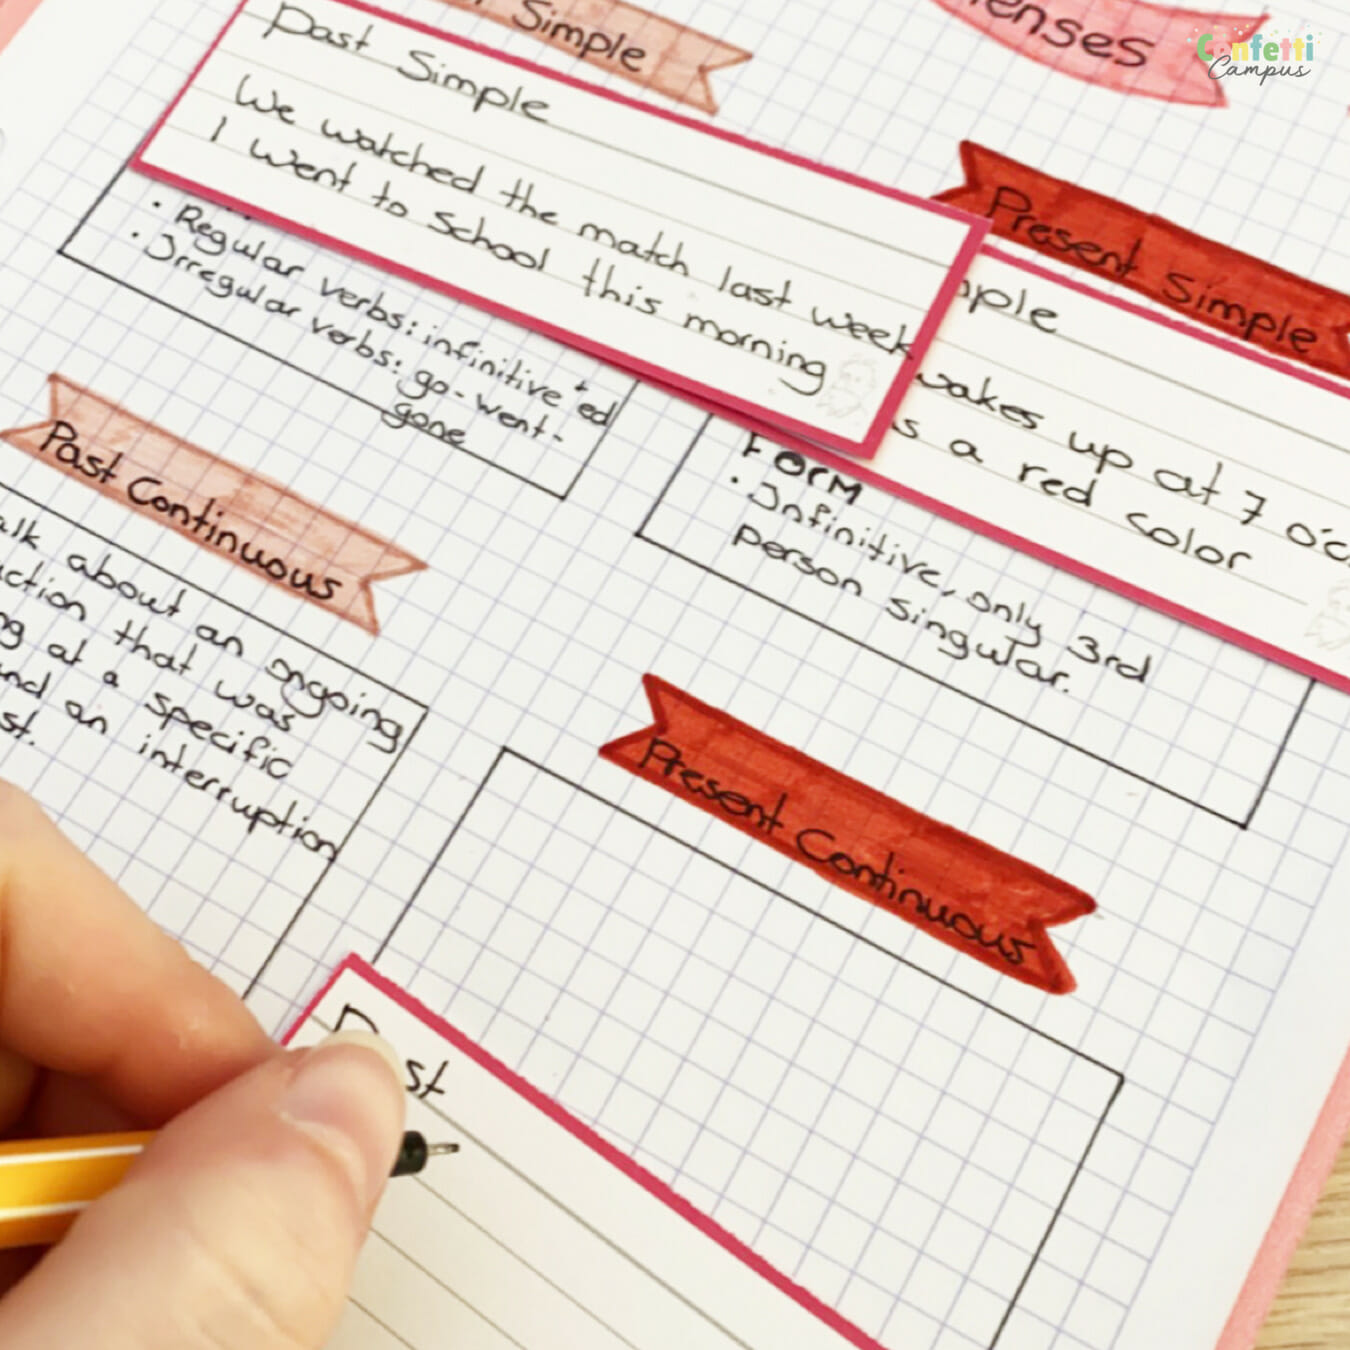 Simple
enses
Confetti
Campus
Past Simple
We watched the match last week
I went to school this morning
• Regular verbs: infinitive + ed
• Irregular verbs: go - went -
gone
Present Simple
wakes up at 7
a red color
Form
• Infinitive, only 3rd
person singular.
Past Continuous
about an ongoing
that was
at a specific
an interruption
Present Continuous
Past